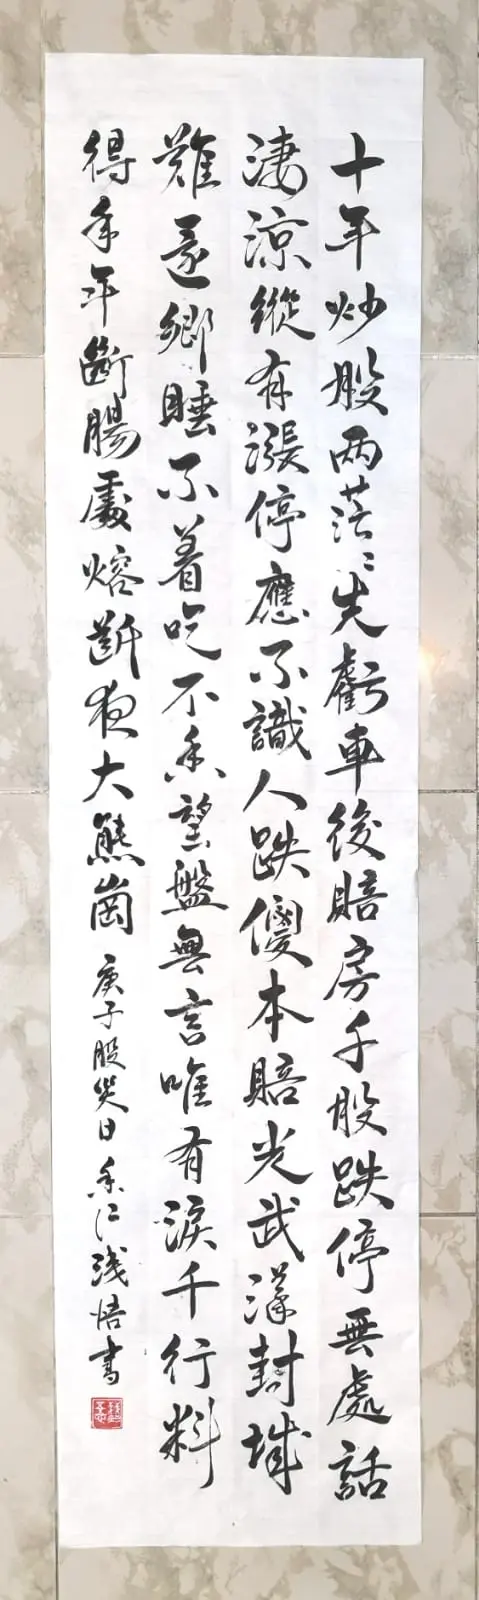 十年炒股两茫〻先虧車後賠房千股跌停無處話
淒涼縱有漲停應不識人跌傻本賠光武漢封城
難還鄉睡不着吃不香望盤無言唯有淚千行料
得年年斷腸處熔斷夜大熊崗庚子股災日香江浅悟書